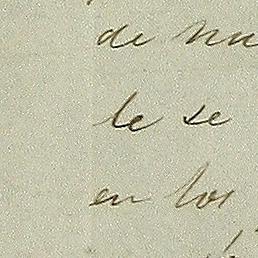 de
le se
en los